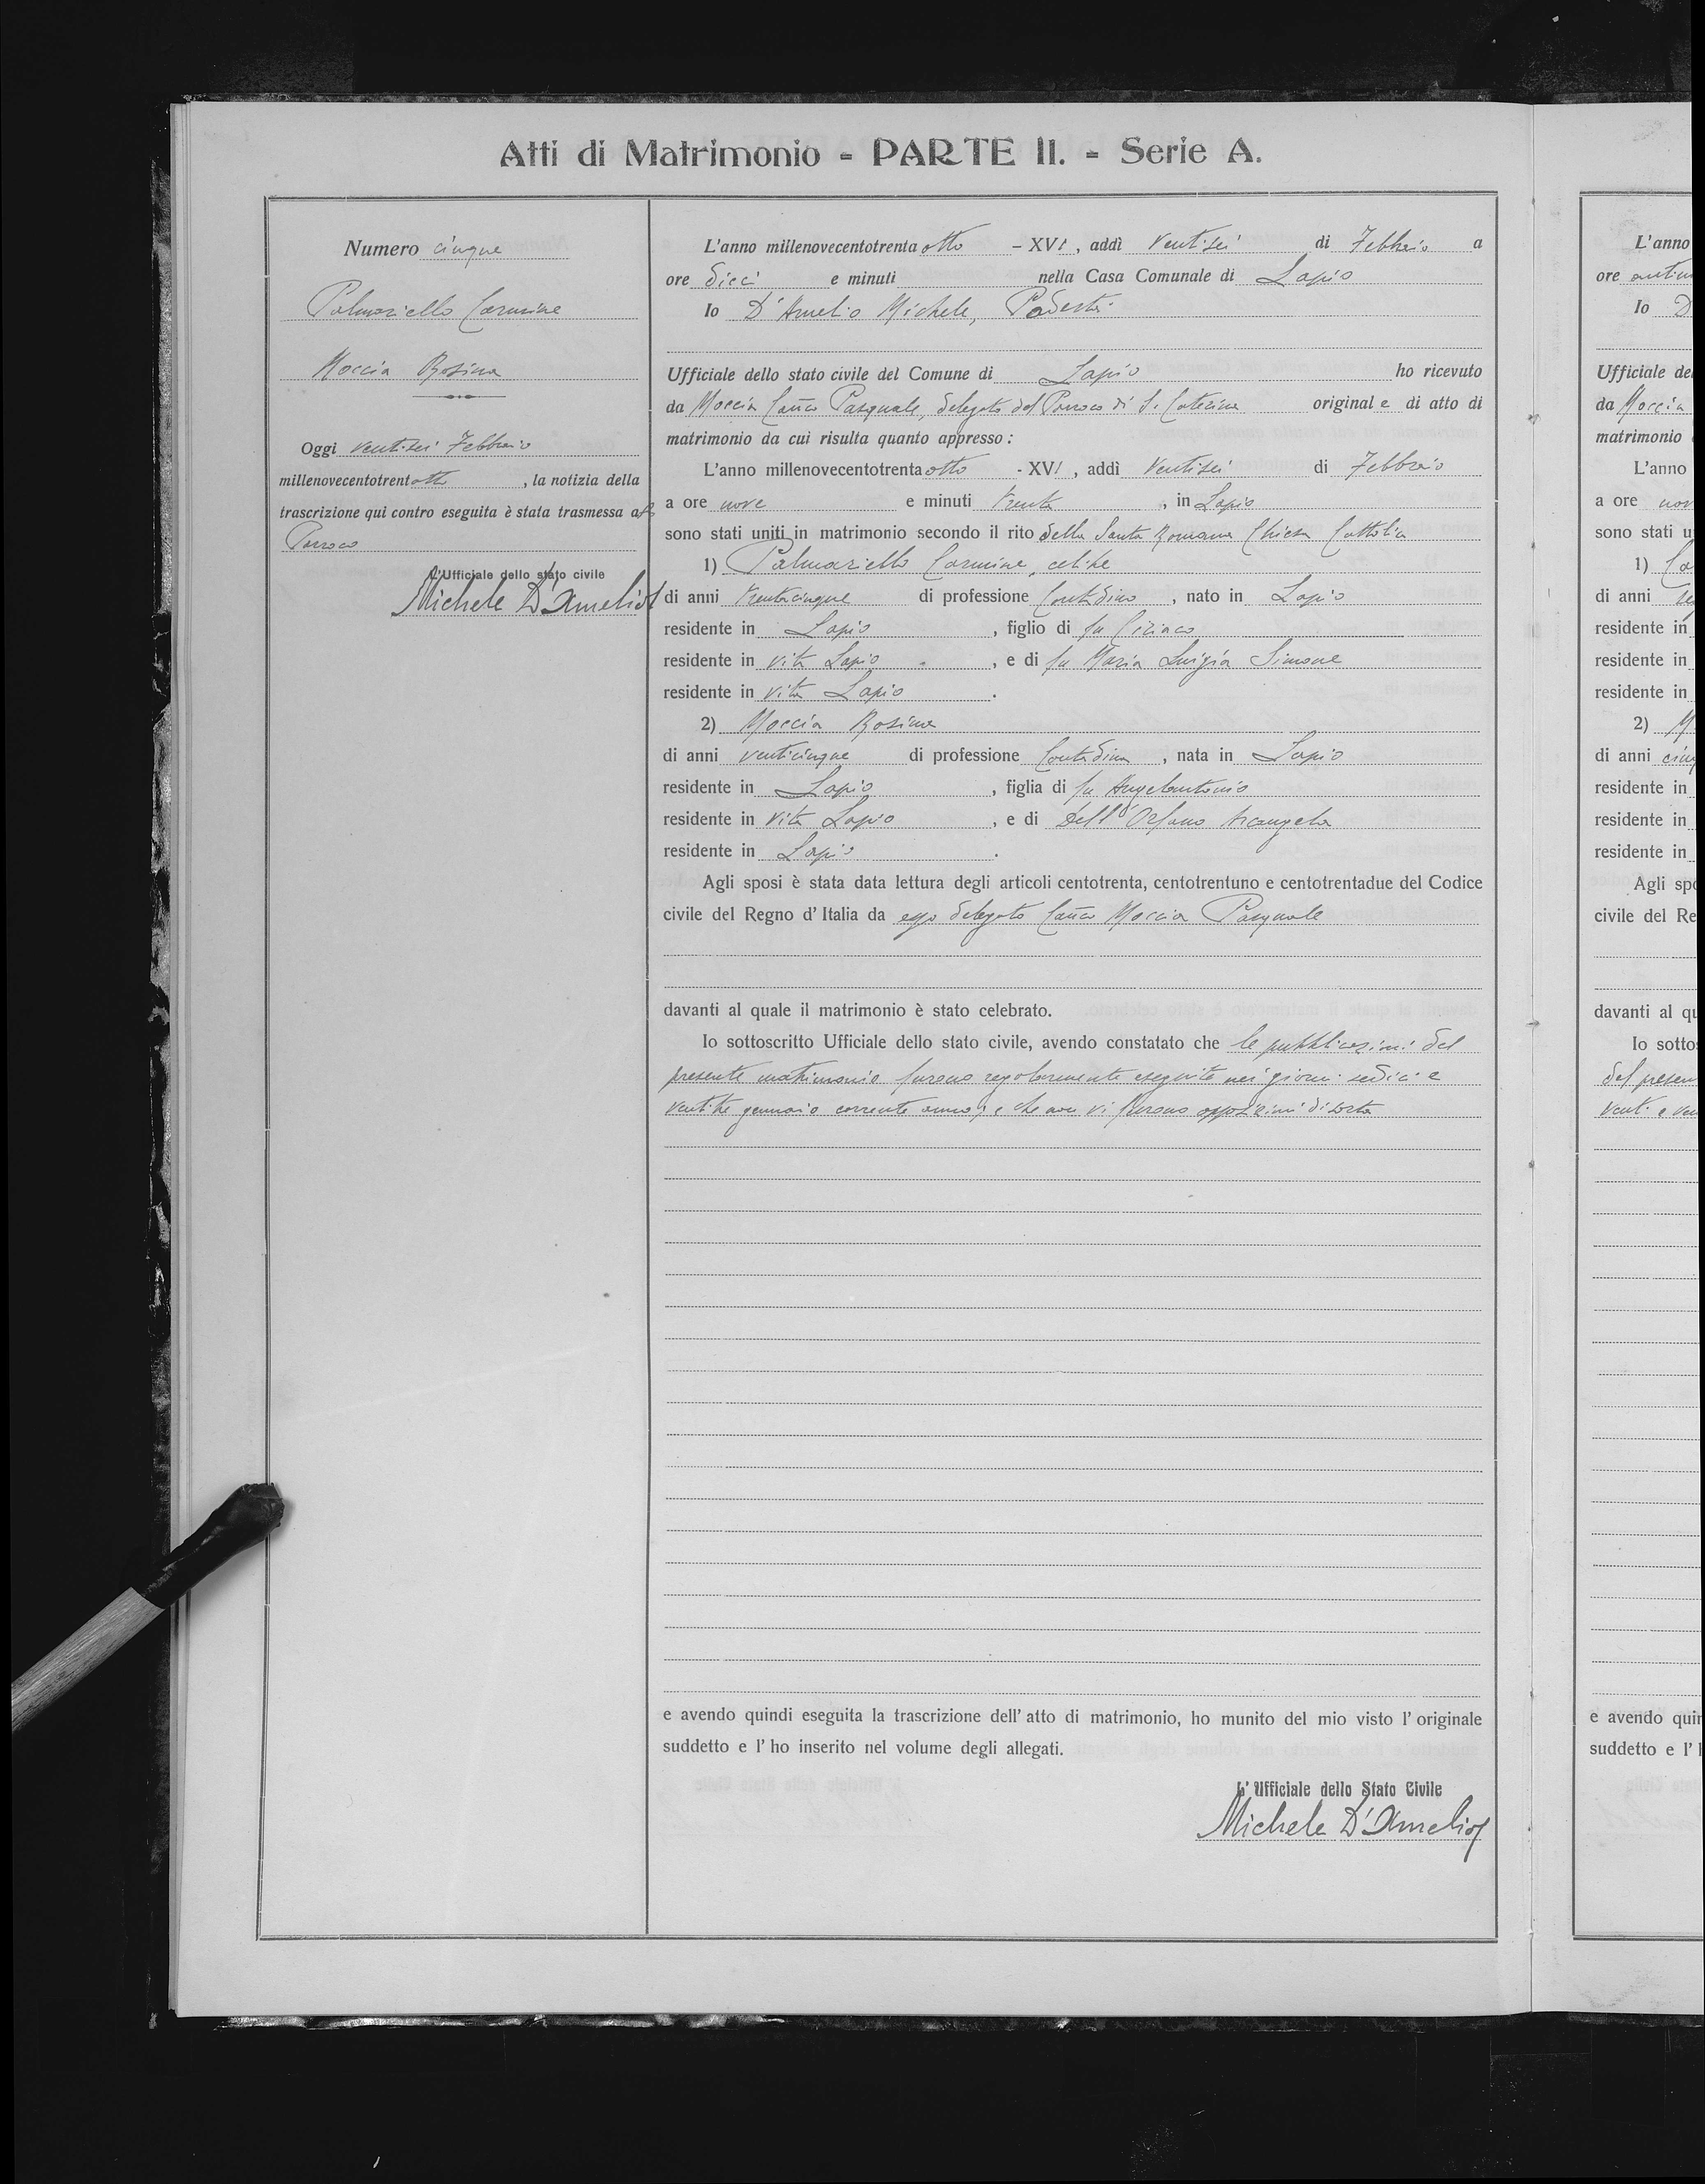 Atti di Matrimonio - PARTE II. - Serie A.
Numero cinque
Palmariello Carmine
Moccia Rosina
Oggi ventisei Febbraio
millenovecentotrentotto, la notizia della
trascrizione qui contro eseguita è stata trasmessa al
Parroco
L'Ufficiale dello stato civile
Michele D'Amelio
L'anno millenovecentotrentaotto - XVI, addì ventisei di Febbraio a
ore dieci e minuti nella Casa Comunale di Lapio
Io D'Amelio Michele, Podestà
Ufficiale dello stato civile del Comune di Lapio ho ricevuto
da Moccia Can.co Pasquale, delegato del Parroco di S. Caterina originale di atto di
matrimonio da cui risulta quanto appresso:
L'anno millenovecentotrentaotto - XVI, addì ventisei di Febbraio
a ore nove e minuti trenta, in Lapio
sono stati uniti in matrimonio secondo il rito della Santa Romana Chiesa Cattolica
1) Palmariello Carmine, celibe
di anni trentacinque di professione Contadino, nato in Lapio
residente in Lapio, figlio di fu Ciriaco
residente in vita Lapio, e di fu Maria Luigia Simone
residente in vita Lapio.
2) Moccia Rosina
di anni venticinque di professione Contadina, nata in Lapio
residente in Lapio, figlia di fu Angelantonio
residente in vita Lapio, e di Dell'Orfano Arcangela
residente in Lapio.
Agli sposi è stata data lettura degli articoli centotrenta, centotrentuno e centotrentadue del Codice
civile del Regno d'Italia da esso delegato Can.co Moccia Pasquale
davanti al quale il matrimonio è stato celebrato.
Io sottoscritto Ufficiale dello stato civile, avendo constatato che le pubblicazioni del
presente matrimonio furono regolarmente eseguite nei giorni sedici e
ventitre gennaio corrente anno, e che non vi furono opposizioni di sorta
e avendo quindi eseguita la trascrizione dell'atto di matrimonio, ho munito del mio visto l'originale
suddetto e l'ho inserito nel volume degli allegati.
L'Ufficiale dello Stato Civile
Michele D'Amelio
L'anno
ore
Io D
Ufficiale de
da Moccia
matrimonio
L'anno
a ore nov
sono stati u
1)
di anni
residente in
residente in
residente in
2) M
di anni
residente in
residente in
residente in
Agli spo
civile del Re
davanti al qu
Io sottos
del presen
venti e ven
e avendo quin
suddetto e l'h